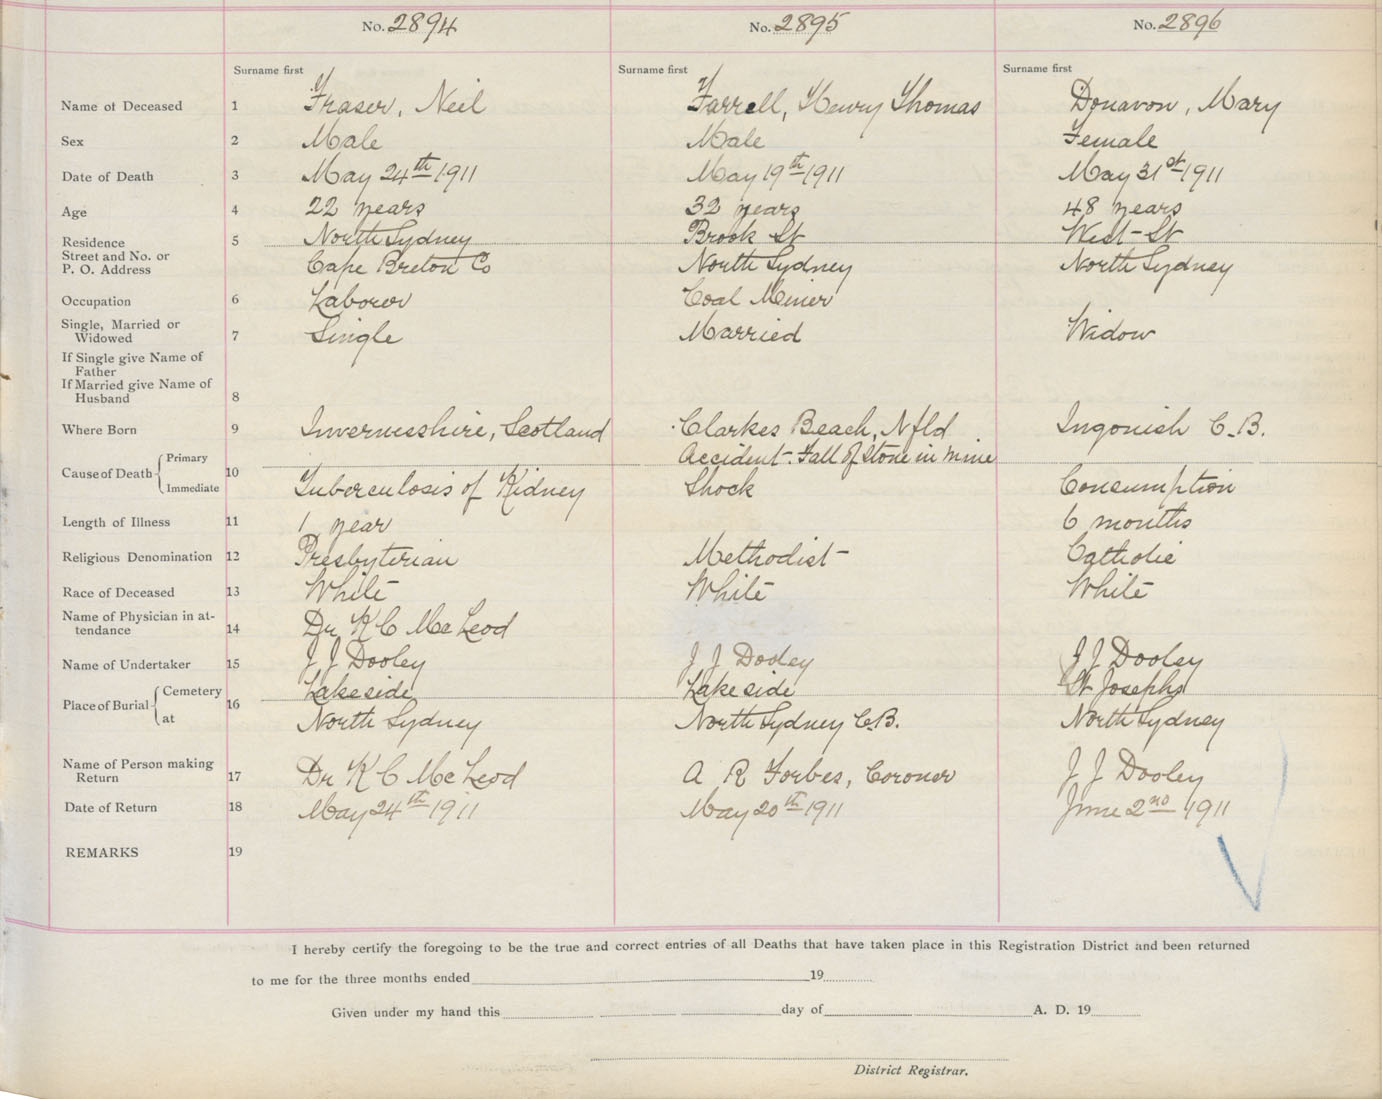 No. 2894 No. 2895 No. 2896
Surname first Surname first Surname first
Name of Deceased 1 Fraser, Neil Farrell, Henry Thomas Donavon, Mary
Sex 2 Male Male Female
Date of Death 3 May 24th 1911 May 19th 1911 May 31st 1911
Age 4 22 years 32 years 48 years
Residence 5 North Sydney Brook St West St
Street and No. or
P. O. Address Cape Breton Co North Sydney North Sydney
Occupation 6 Laborer Coal Miner
Single, Married or
Widowed 7 Single Married Widow
If Single give Name of
Father
If Married give Name of
Husband 8
Where Born 9 Invernesshire, Scotland Clarkes Beach, Nfld Ingonish C.B.
Cause of Death Primary 10 Accident. Fall of Stone in mine
Immediate Tuberculosis of Kidney Shock Consumption
Length of Illness 11 1 year 6 months
Religious Denomination 12 Presbyterian Methodist Catholic
Race of Deceased 13 White White White
Name of Physician in at-
tendance 14 Dr K C McLeod
Name of Undertaker 15 J J Dooley J J Dooley J J Dooley
Place of Burial Cemetery 16 Lakeside Lakeside St Josephs
at North Sydney North Sydney C.B. North Sydney
Name of Person making
Return 17 Dr K C McLeod A R Forbes, Coroner J J Dooley
Date of Return 18 May 24th 1911 May 20th 1911 June 2nd 1911
REMARKS 19
I hereby certify the foregoing to be the true and correct entries of all Deaths that have taken place in this Registration District and been returned
to me for the three months ended 19
Given under my hand this day of A. D. 19
District Registrar.